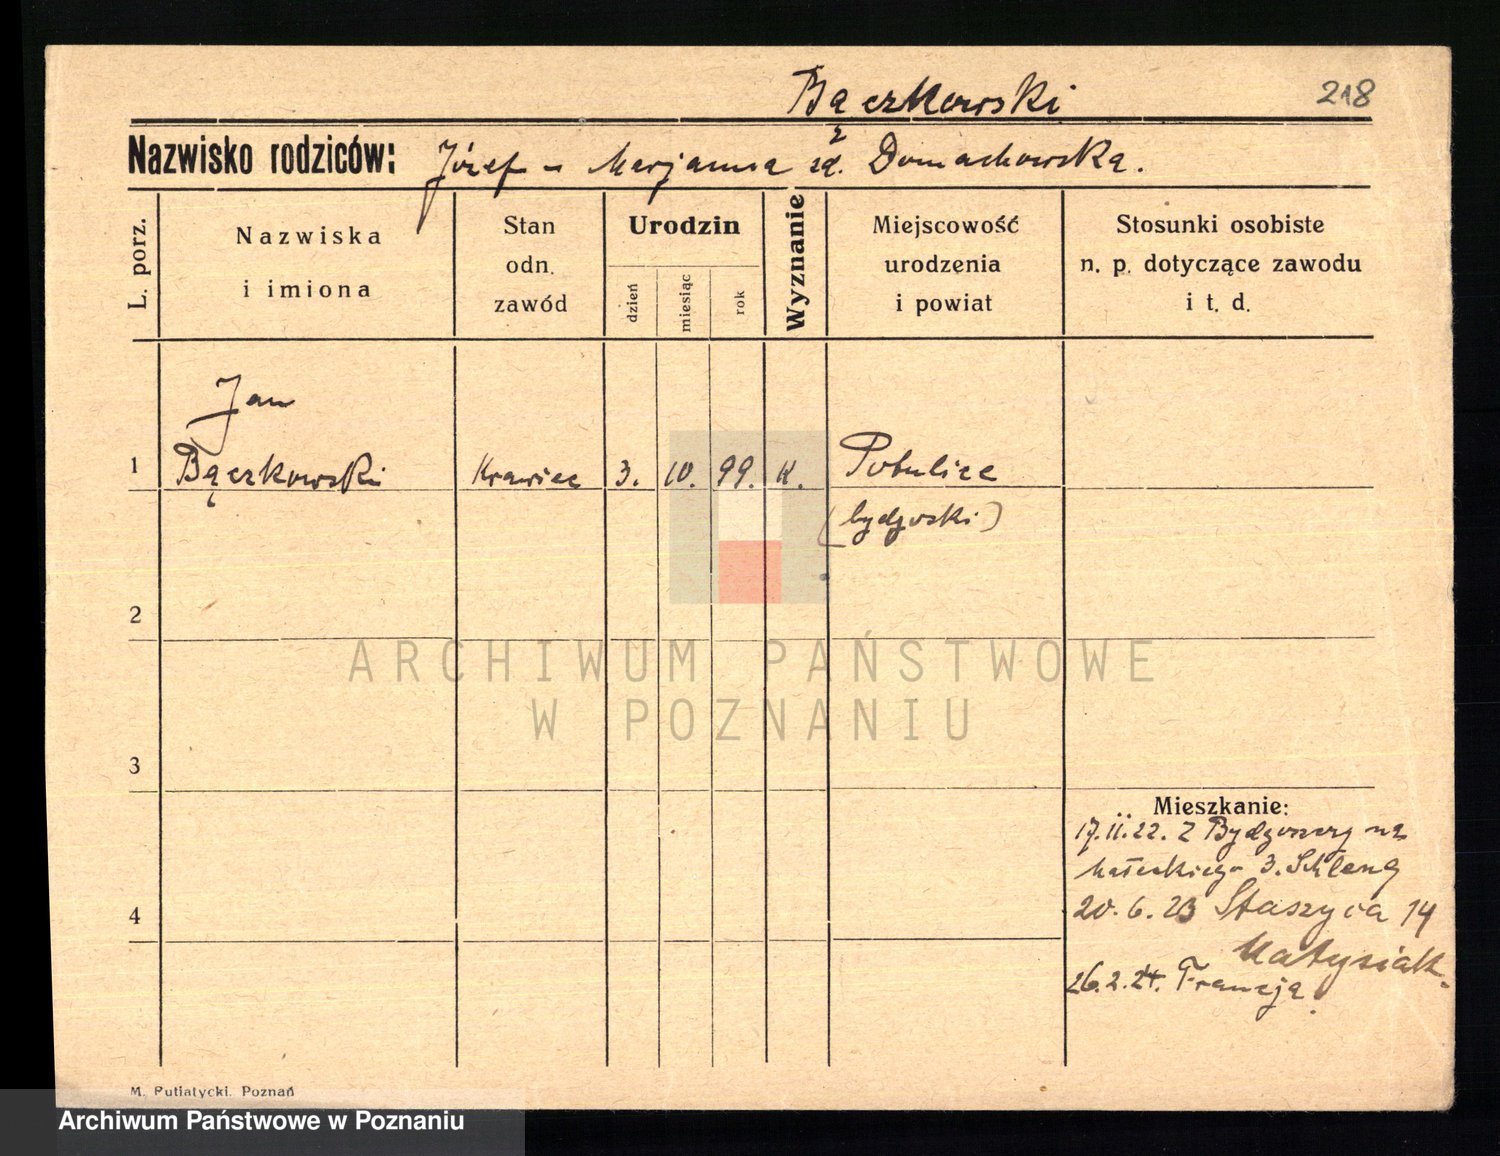 Bączkowski
218
Nazwisko rodziców: Józef - Marjanna zd. Domachowska.
L. porz.
Nazwiska
i imiona
Stan
odn.
zawód
Urodzin
dzień
miesiąc
rok
Wyznanie
Miejscowość
urodzenia
i powiat
Stosunki osobiste
n. p. dotyczące zawodu
i t. d.
Jan
1 Bączkowski Krawiec 3. 10. 99. K. Potulice
(bydgoski)
2
ARCHIWUM PAŃSTWOWE
W POZNANIU
3
Mieszkanie:
17.11.22. Z Bydgoszczy na
Małeckiego 3.
4
20.6.23 Staszyca 14
Matysiak.
26.2.24. Francja.
M. Putiatycki, Poznań
Archiwum Państwowe w Poznaniu